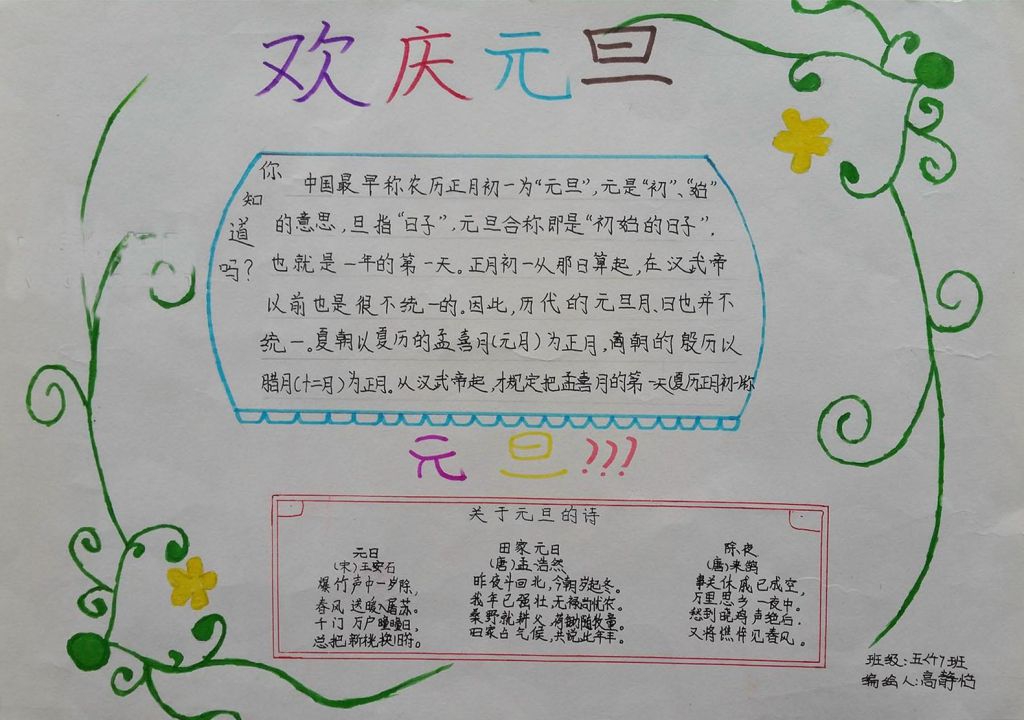 欢庆元旦
你知道吗？
中国最早称农历正月初一为“元旦”，元是“初”、“始”
的意思，旦指“日子”，元旦合称即是“初始的日子”，
也就是一年的第一天。正月初一从那日算起，在汉武帝
以前也是很不统一的。因此，历代的元旦月、日也并不
统一。夏朝以夏历的孟喜月(元月)为正月，商朝的殷历以
腊月(十二月)为正月。从汉武帝起，才规定把孟喜月的第一天(夏历正月初一)称
元旦???
关于元旦的诗
元日
(宋)王安石
爆竹声中一岁除，
春风送暖入屠苏。
千门万户曈曈日，
总把新桃换旧符。
田家元日
(唐)孟浩然
昨夜斗回北，今朝岁起冬。
我年已强壮，无禄尚忧农。
桑野就耕父，荷锄随牧童。
田家占气候，共说此年丰。
除夜
(唐)来鹄
事关休戚已成空，
万里思乡一夜中。
愁到晓鸡声绝后，
又将憔悴见春风。
班级：五〈4〉班
编绘人：高静怡